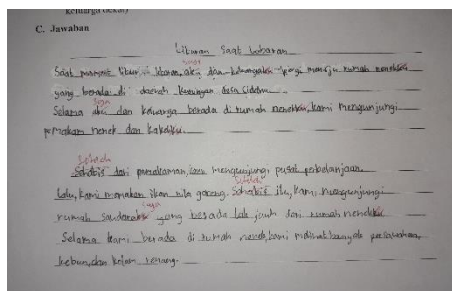 keluarga dekat)
C. Jawaban
Liburan Saat Lebaran
saya
Saat libur lebaran, aku dan pergi menuju rumah
yang berada di daerah Kuningan desa Cidahu.
saya
Selama aku dan keluarga berada di rumah nenekku, kami mengunjungi
pemakaman nenek dan kakekku.
Setelah
Sehabis dari pemakaman, kami mengunjungi pusat perbelanjaan.
Setelah
Lalu, kami memakan ikan nila goreng. Sehabis itu, kami mengunjungi
saya
rumah saudaraku yang berada tak jauh dari rumah nenekku.
Selama kami berada di rumah nenek, kami melihat banyak persawahan,
kebun, dan kolam renang.